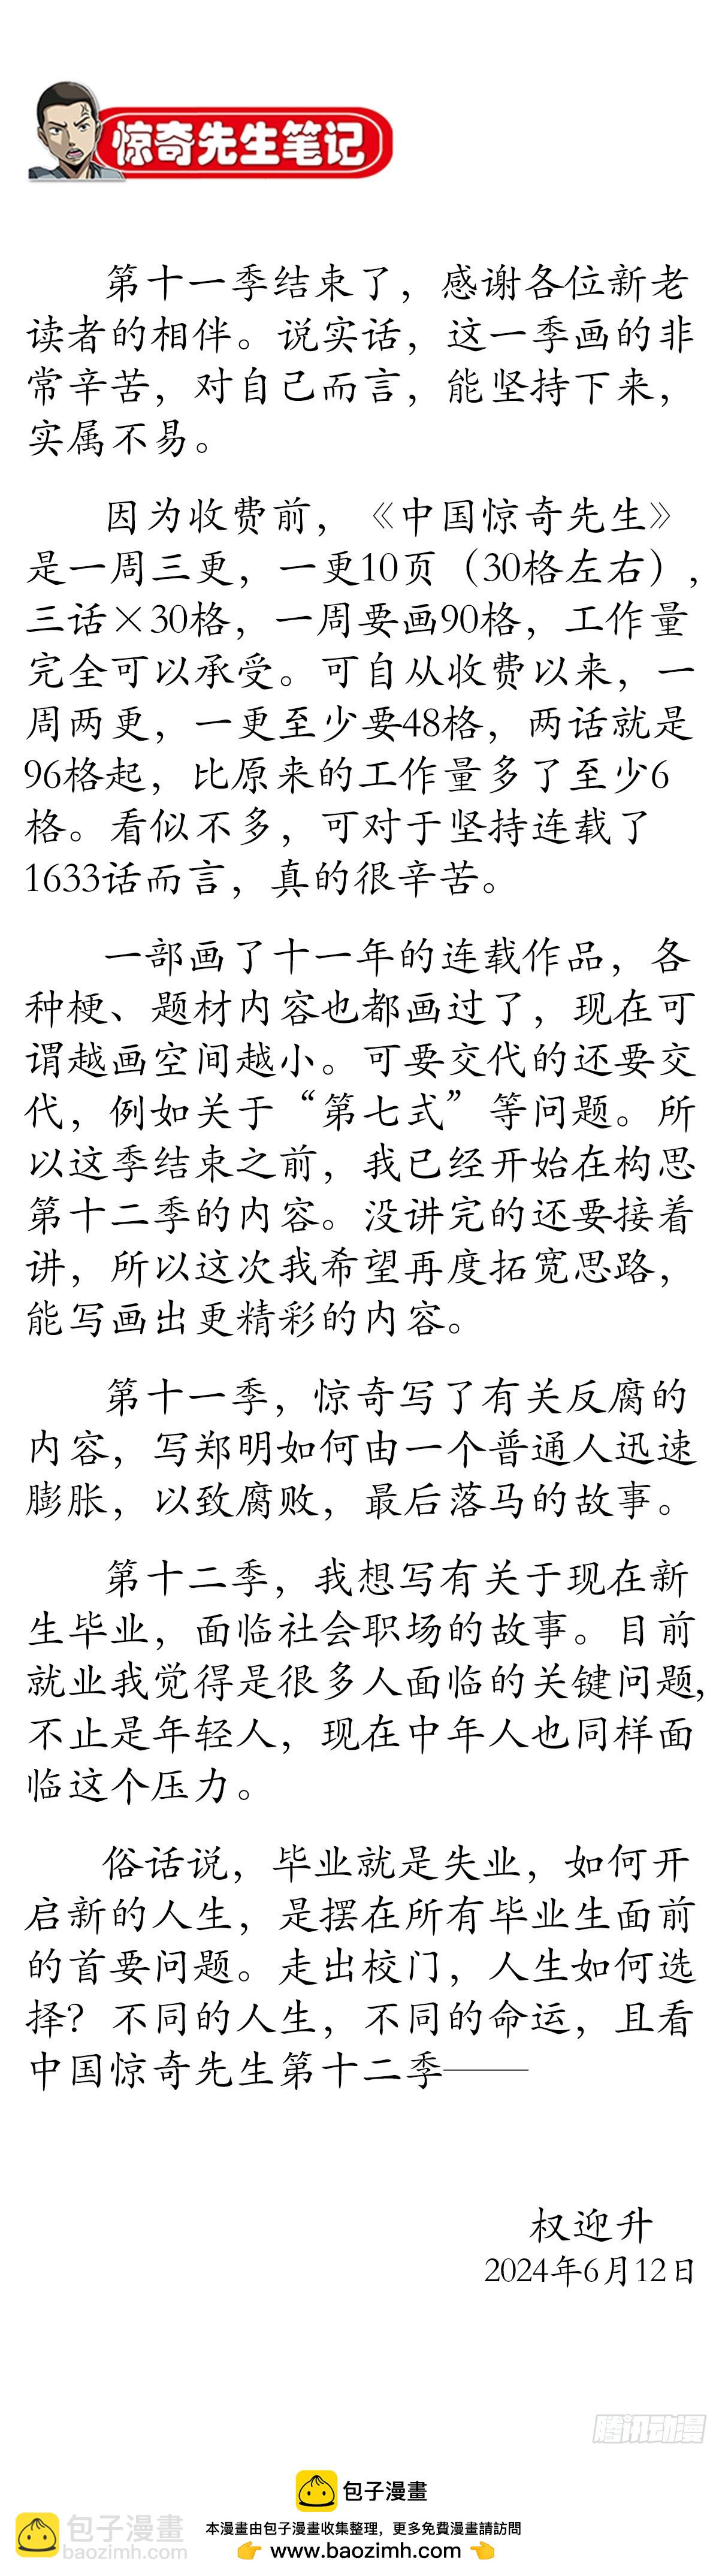 惊奇先生笔记
第十一季结束了，感谢各位新老
读者的相伴。说实话，这一季画的非
常辛苦，对自己而言，能坚持下来，
实属不易。
因为收费前，《中国惊奇先生》
是一周三更，一更10页（30格左右），
三话×30格，一周要画90格，工作量
完全可以承受。可自从收费以来，一
周两更，一更至少要48格，两话就是
96格起，比原来的工作量多了至少6
格。看似不多，可对于坚持连载了
1633话而言，真的很辛苦。
一部画了十一年的连载作品，各
种梗、题材内容也都画过了，现在可
谓越画空间越小。可要交代的还要交
代，例如关于“第七式”等问题。所
以这季结束之前，我已经开始在构思
第十二季的内容。没讲完的还要接着
讲，所以这次我希望再度拓宽思路，
能写画出更精彩的内容。
第十一季，惊奇写了有关反腐的
内容，写郑明如何由一个普通人迅速
膨胀，以致腐败，最后落马的故事。
第十二季，我想写有关于现在新
生毕业，面临社会职场的故事。目前
就业我觉得是很多人面临的关键问题，
不止是年轻人，现在中年人也同样面
临这个压力。
俗话说，毕业就是失业，如何开
启新的人生，是摆在所有毕业生面前
的首要问题。走出校门，人生如何选
择？不同的人生，不同的命运，且看
中国惊奇先生第十二季——
权迎升
2024年6月12日
腾讯动漫
包子漫畫
本漫畫由包子漫畫收集整理，更多免費漫畫請訪問
www.baozimh.com
包子漫畫
baozimh.com